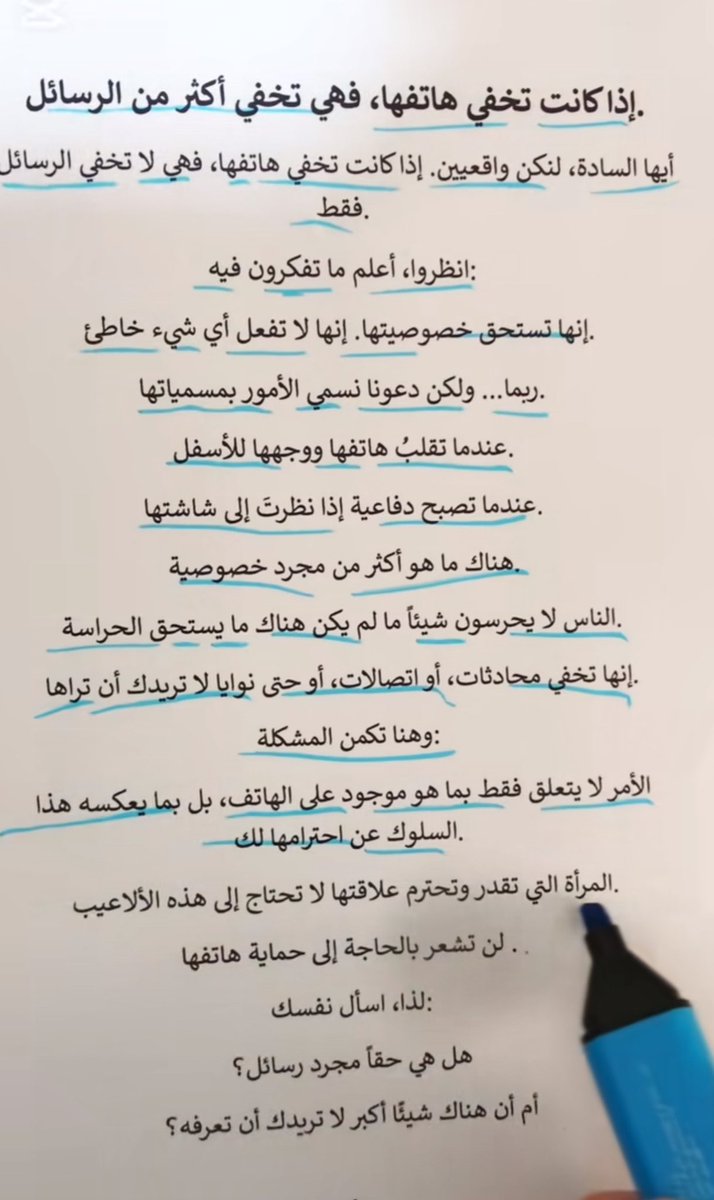 إذا كانت تخفي هاتفها، فهي تخفي أكثر من الرسائل.
أيها السادة، لنكن واقعيين. إذا كانت تخفي هاتفها، فهي لا تخفي الرسائل
فقط.
انظروا، أعلم ما تفكرون فيه:
إنها تستحق خصوصيتها. إنها لا تفعل أي شيء خاطئ.
ربما... ولكن دعونا نسمي الأمور بمسمياتها.
عندما تقلبُ هاتفها ووجهها للأسفل.
عندما تصبح دفاعية إذا نظرتَ إلى شاشتها.
هناك ما هو أكثر من مجرد خصوصية.
الناس لا يحرسون شيئاً ما لم يكن هناك ما يستحق الحراسة.
إنها تخفي محادثات، أو اتصالات، أو حتى نوايا لا تريدك أن تراها.
وهنا تكمن المشكلة:
الأمر لا يتعلق فقط بما هو موجود على الهاتف، بل بما يعكسه هذا
السلوك عن احترامها لك.
المرأة التي تقدر وتحترم علاقتها لا تحتاج إلى هذه الألاعيب.
. . لن تشعر بالحاجة إلى حماية هاتفها
لذا، اسأل نفسك:
هل هي حقاً مجرد رسائل؟
أم أن هناك شيئًا أكبر لا تريدك أن تعرفه؟